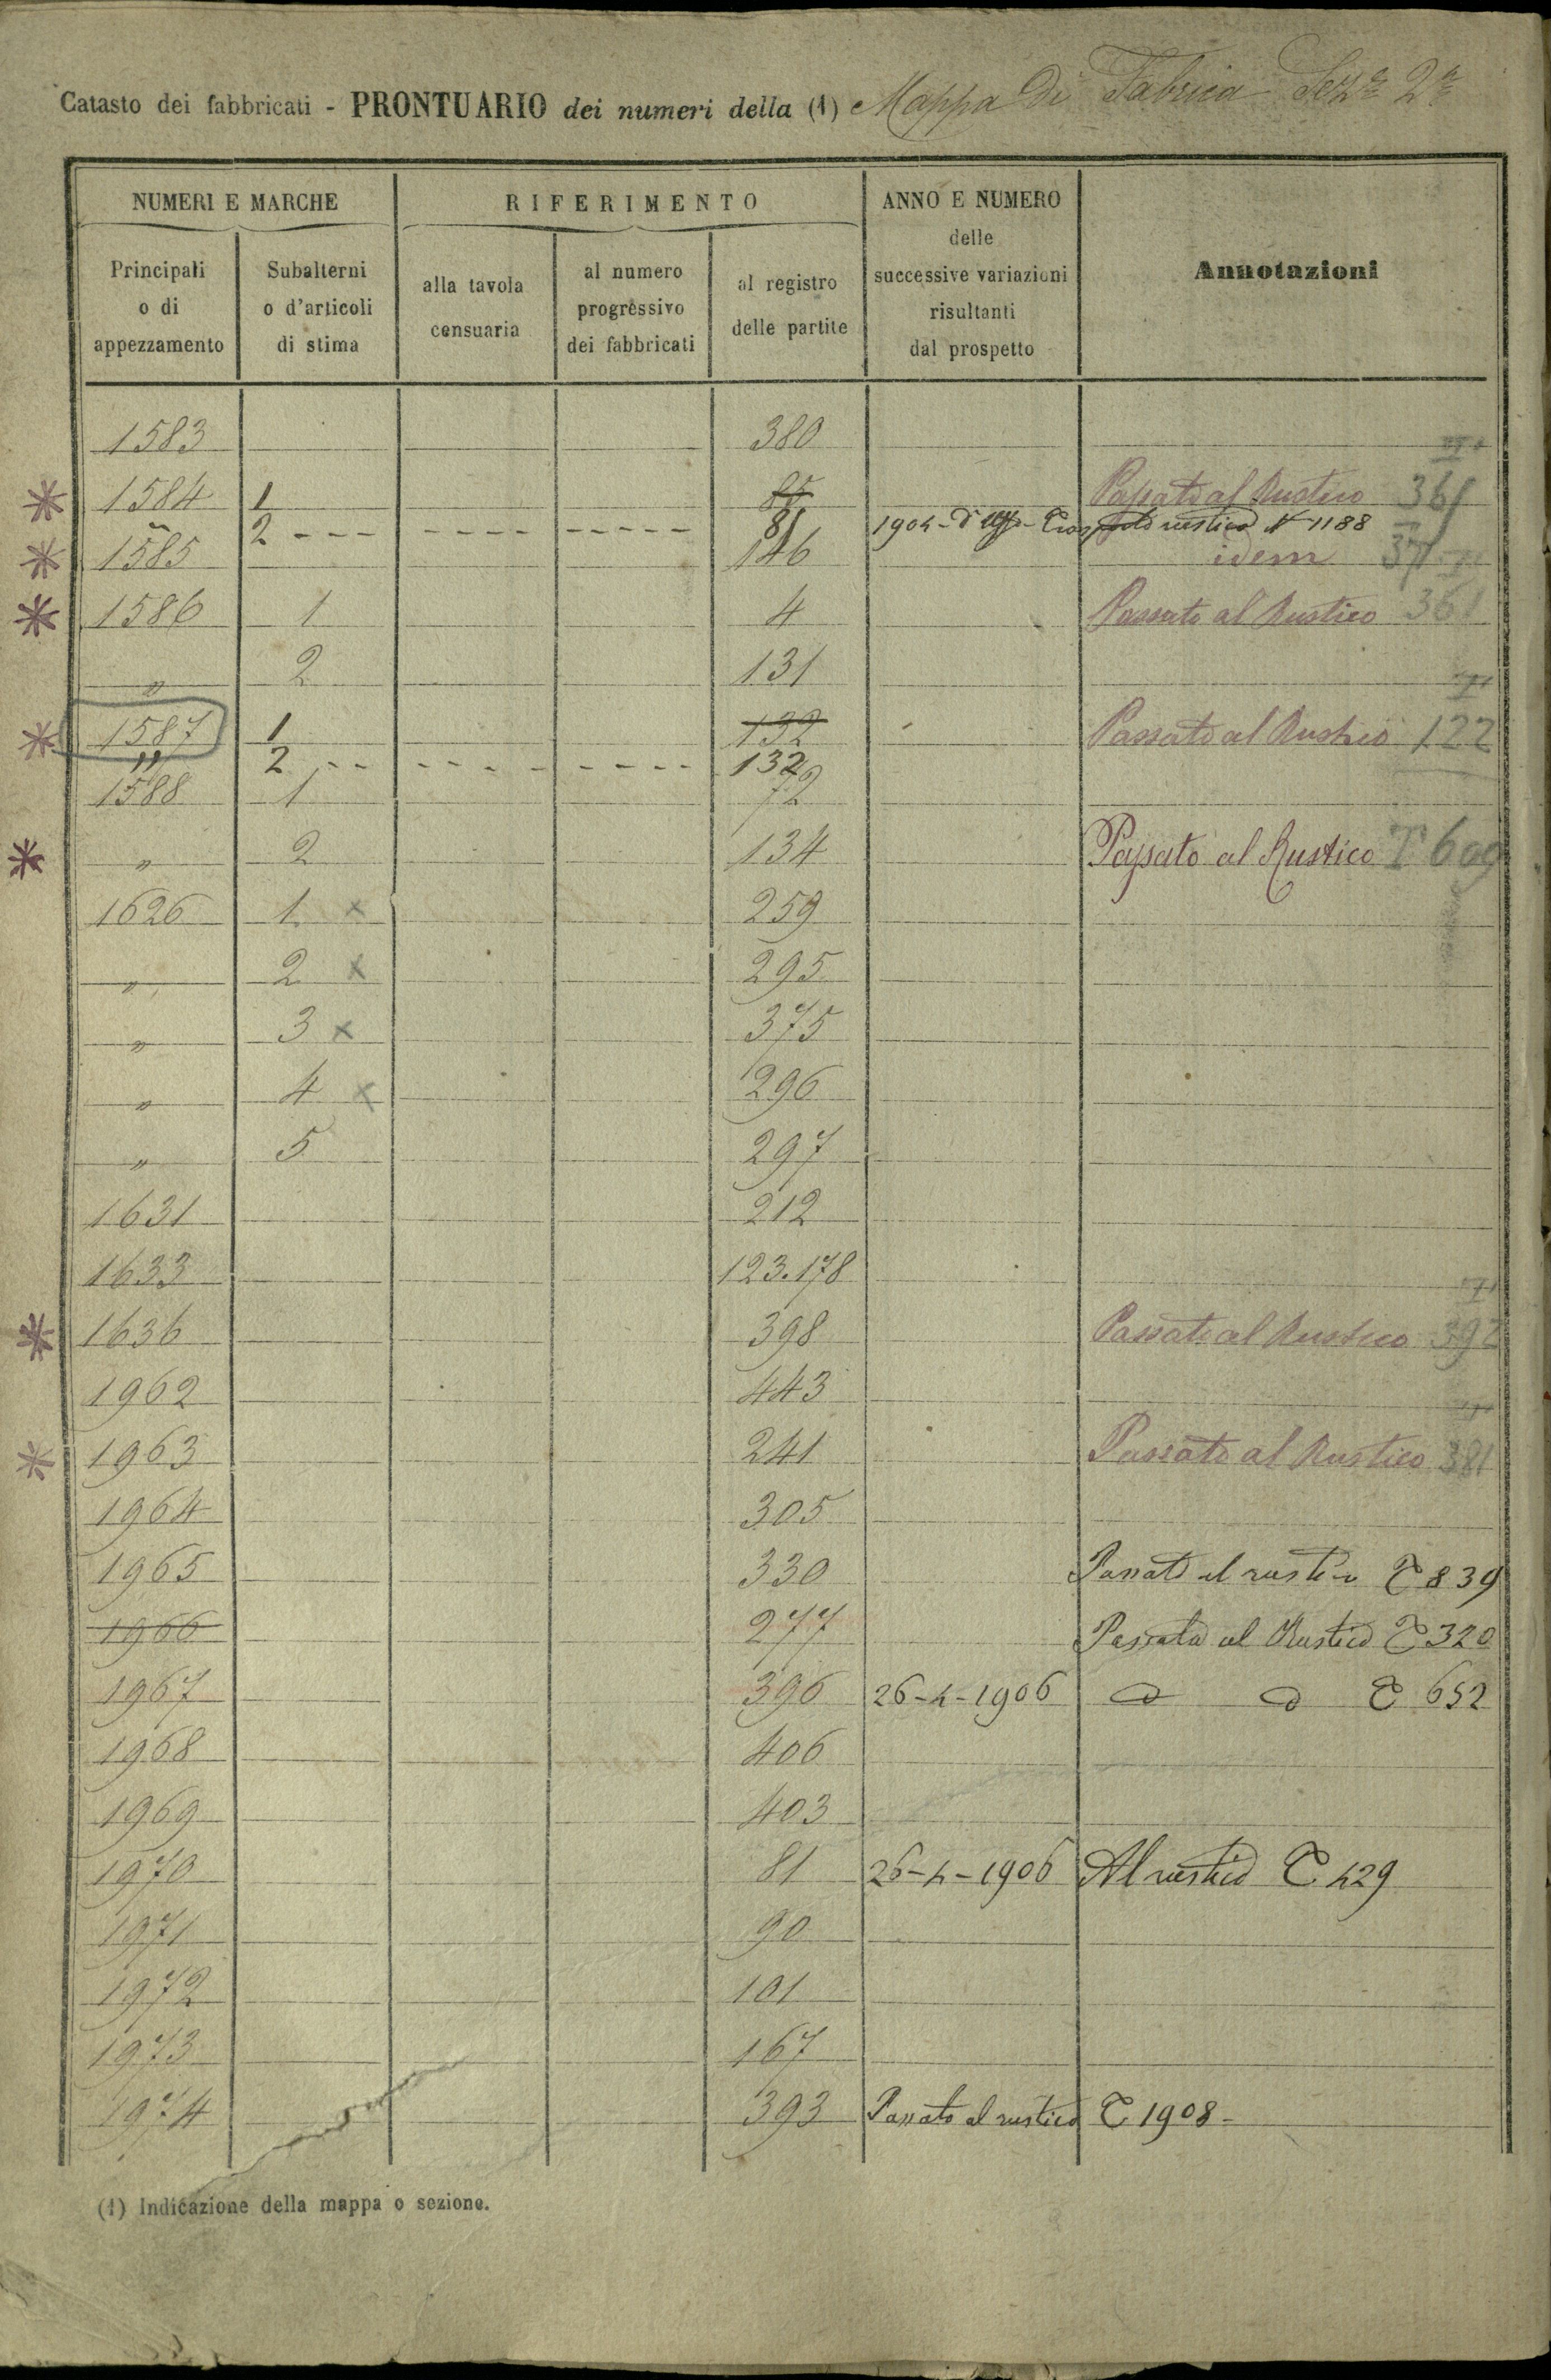 Catasto dei fabbricati - PRONTUARIO dei numeri della (1) Mappa di Fabrica Sez.e 2a
NUMERI E MARCHE
RIFERIMENTO
ANNO E NUMERO
delle
successive variazioni
risultanti
dal prospetto
Annotazioni
Principali
o di
appezzamento
Subalterni
o d'articoli
di stima
alla tavola
censuaria
al numero
progressivo
dei fabbricati
al registro
delle partite
1583 380
1584 1 85 Passato al Rustico
" 2 1904 rustico N 1188
1585 146 idem
1586 1 4 Passato al Rustico 361
" 2 131
1587 1 132 Passato al Rustico 122
" 2 132
1588 1 72
" 2 134 Passato al Rustico T 609
1626 1 x 259
" 2 x 295
" 3 x 375
" 4 x 296
" 5 297
1631 212
1633 123.178
1636 398 Passato al Rustico 392
1962 443
1963 241 Passato al Rustico 381
1964 305
1965 330 Passato al rustico T 839
1966 277 Passato al Rustico T 320
1967 396 26-4-1906 T 652
1968 406
1969 403
1970 81 26-4-1906 Al rustico T 429
1971 90
1972 101
1973 167
1974 393 Passato al rustico T 1908-
(1) Indicazione della mappa o sezione.